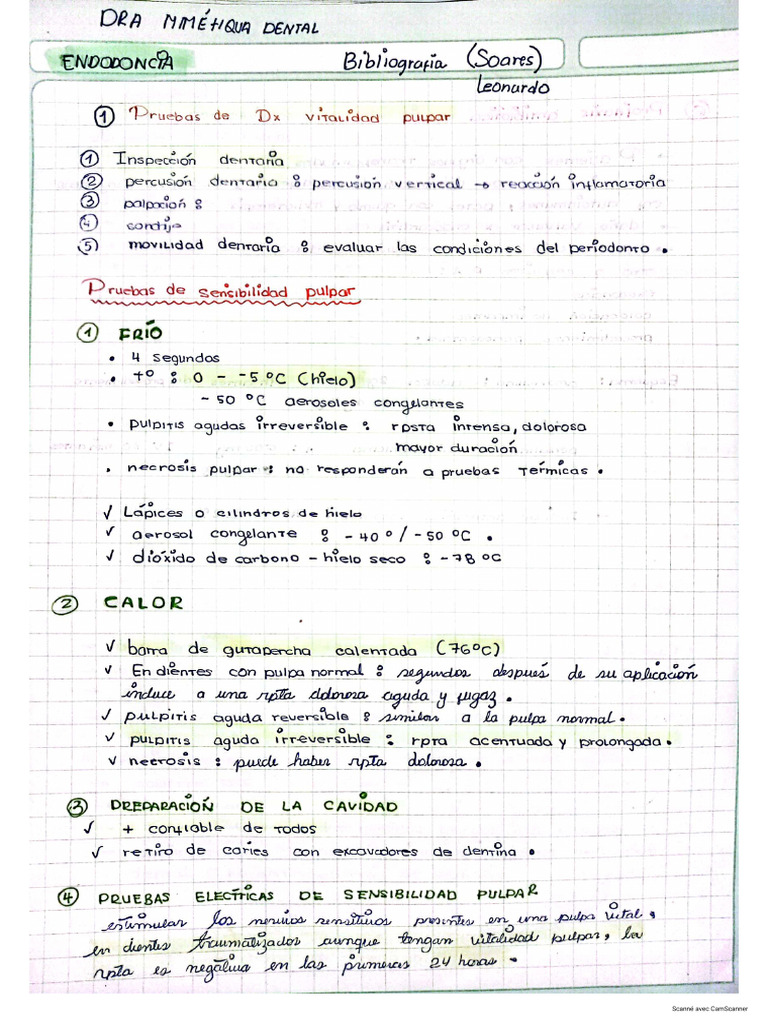 DRA NMÉTIQUA DENTAL
ENDODONCIA
Bibliografía (Soares)
Leonardo
① Pruebas de Dx vitalidad pulpar
① Inspección dentaria
② percusión dentaria : percusión vertical → reacción inflamatoria
③ palpación :
④
⑤ movilidad dentaria : evaluar las condiciones del periodonto.
Pruebas de sensibilidad pulpar
① FRÍO
• 4 segundos
• Tº : 0 - -5ºC (hielo)
- 50 ºC aerosoles congelantes
• pulpitis agudas irreversible : rpsta intensa, dolorosa
mayor duración
• necrosis pulpar : no responderán a pruebas térmicas.
✓ Lápices o cilindros de hielo
✓ aerosol congelante : - 40º / - 50 ºC.
✓ dióxido de carbono - hielo seco : -78 ºC
② CALOR
✓ barra de gutapercha calentada (76ºC)
✓ En dientes con pulpa normal : segundos después de su aplicación
induce a una rpta dolorosa aguda y fugaz.
✓ pulpitis aguda reversible : similar a la pulpa normal.
✓ pulpitis aguda irreversible : rpta acentuada y prolongada.
✓ necrosis : puede haber rpta dolorosa.
③ PREPARACIÓN DE LA CAVIDAD
✓ + confiable de todos
✓ retiro de caries con excavadores de dentina.
④ PRUEBAS ELECTRICAS DE SENSIBILIDAD PULPAR
estimular los nervios sensitivos presentes en una pulpa vital,
en dientes traumatizados aunque tengan vitalidad pulpar, la
rpta es negativa en las primeras 24 horas.
Scanné avec CamScanner